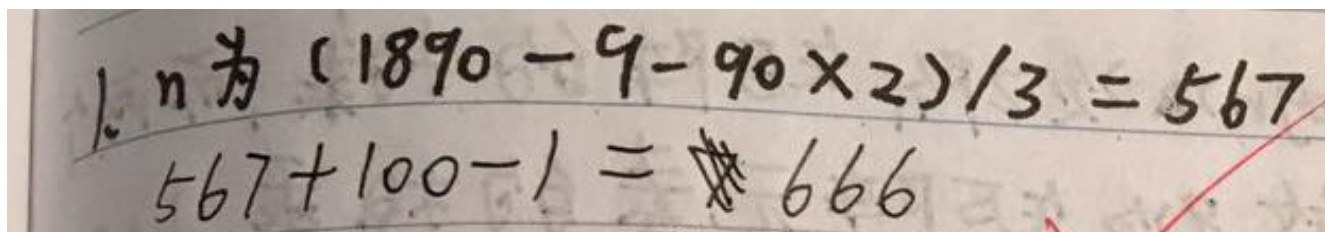 1. n为(1890-9-90×2)/3=567
567+100-1=666